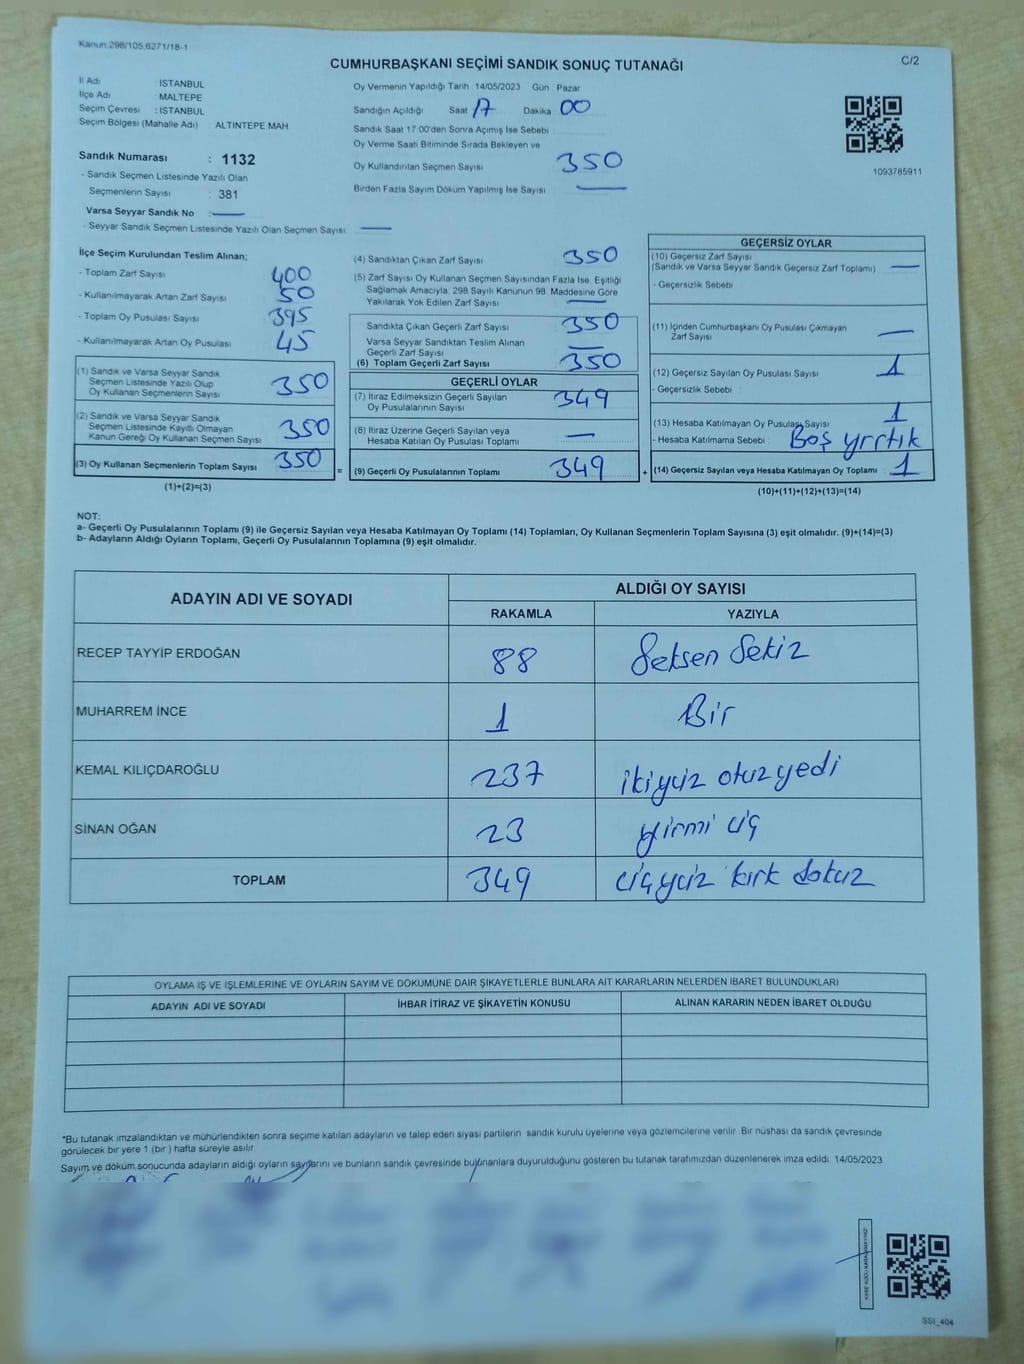 Kanun:298/105,6271/18-1
C/2
CUMHURBAŞKANI SEÇİMİ SANDIK SONUÇ TUTANAĞI
İl Adı İSTANBUL
İlçe Adı MALTEPE
Seçim Çevresi : İSTANBUL
Seçim Bölgesi (Mahalle Adı) ALTINTEPE MAH
Sandık Numarası : 1132
- Sandık Seçmen Listesinde Yazılı Olan
Seçmenlerin Sayısı : 381
Varsa Seyyar Sandık No :
- Seyyar Sandık Seçmen Listesinde Yazılı Olan Seçmen Sayısı:
Oy Vermenin Yapıldığı Tarih : 14/05/2023 Gün Pazar
Sandığın Açıldığı Saat 17 Dakika 00
Sandık Saat 17:00'den Sonra Açımış İse Sebebi
Oy Verme Saati Bitiminde Sırada Bekleyen ve
Oy Kullandırılan Seçmen Sayısı 350
Birden Fazla Sayım Döküm Yapılmış İse Sayısı
1093785911
İlçe Seçim Kurulundan Teslim Alınan;
- Toplam Zarf Sayısı 400
- Kullanılmayarak Artan Zarf Sayısı 50
- Toplam Oy Pusulası Sayısı 395
- Kullanılmayarak Artan Oy Pusulası 45
(1) Sandık ve Varsa Seyyar Sandık
Seçmen Listesinde Yazılı Olup
Oy Kullanan Seçmenlerin Sayısı 350
(2) Sandık ve Varsa Seyyar Sandık
Seçmen Listesinde Kayıtlı Olmayan
Kanun Gereği Oy Kullanan Seçmen Sayısı 350
(3) Oy Kullanan Seçmenlerin Toplam Sayısı 350 =
(1)+(2)=(3)
(4) Sandıktan Çıkan Zarf Sayısı 350
(5) Zarf Sayısı Oy Kullanan Seçmen Sayısından Fazla İse, Eşitliği
Sağlamak Amacıyla, 298 Sayılı Kanunun 98. Maddesine Göre
Yakılarak Yok Edilen Zarf Sayısı
Sandıkta Çıkan Geçerli Zarf Sayısı 350
Varsa Seyyar Sandıktan Teslim Alınan
Geçerli Zarf Sayısı
(6) Toplam Geçerli Zarf Sayısı 350
GEÇERLİ OYLAR
(7) İtiraz Edilmeksizin Geçerli Sayılan
Oy Pusulalarının Sayısı 349
(8) İtiraz Üzerine Geçerli Sayılan veya
Hesaba Katılan Oy Pusulası Toplamı
(9) Geçerli Oy Pusulalarının Toplamı 349 +
GEÇERSİZ OYLAR
(10) Geçersiz Zarf Sayısı
(Sandık ve Varsa Seyyar Sandık Geçersiz Zarf Toplamı)
- Geçersizlik Sebebi
(11) İçinden Cumhurbaşkanı Oy Pusulası Çıkmayan
Zarf Sayısı
(12) Geçersiz Sayılan Oy Pusulası Sayısı 1
- Geçersizlik Sebebi
(13) Hesaba Katılmayan Oy Pusulası Sayısı 1
- Hesaba Katılmama Sebebi Boş yırtık
(14) Geçersiz Sayılan veya Hesaba Katılmayan Oy Toplamı 1
(10)+(11)+(12)+(13)=(14)
NOT:
a- Geçerli Oy Pusulalarının Toplamı (9) ile Geçersiz Sayılan veya Hesaba Katılmayan Oy Toplamı (14) Toplamları, Oy Kullanan Seçmenlerin Toplam Sayısına (3) eşit olmalıdır. (9)+(14)=(3)
b- Adayların Aldığı Oyların Toplamı, Geçerli Oy Pusulalarının Toplamına (9) eşit olmalıdır.
ADAYIN ADI VE SOYADI ALDIĞI OY SAYISI
RAKAMLA YAZIYLA
RECEP TAYYİP ERDOĞAN 88 Seksen Sekiz
MUHARREM İNCE 1 Bir
KEMAL KILIÇDAROĞLU 237 ikiyüz otuz yedi
SİNAN OĞAN 23 yirmi üç
TOPLAM 349 üçyüz kırk dokuz
OYLAMA İŞ VE İŞLEMLERİNE VE OYLARIN SAYIM VE DÖKÜMÜNE DAİR ŞİKAYETLERLE BUNLARA AİT KARARLARIN NELERDEN İBARET BULUNDUKLARI
ADAYIN ADI VE SOYADI İHBAR İTİRAZ VE ŞİKAYETİN KONUSU ALINAN KARARIN NEDEN İBARET OLDUĞU
*Bu tutanak imzalandıktan ve mühürlendikten sonra seçime katılan adayların ve talep eden siyasi partilerin sandık kurulu üyelerine veya gözlemcilerine verilir. Bir nüshası da sandık çevresinde
görülecek bir yere 1 (bir) hafta süreyle asılır.
Sayım ve döküm sonucunda adayların aldığı oyların sayılarını ve bunların sandık çevresinde bulunanlara duyurulduğunu gösteren bu tutanak tarafımızdan düzenlenerek imza edildi. 14/05/2023
SSI_404